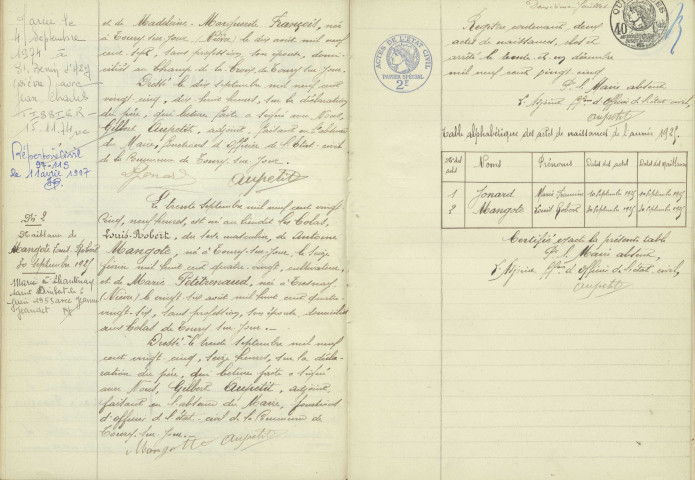 Marié le
4 Septembre
1974 à
St Benin d'Azy
(Nièvre) avec
Jean Charles
TISSIER
Répertoire civil
97-115
le 11 avril 1997
et de Madeleine Marguerite François, née
à Toury sur Jour (Nièvre) le dix août mil neuf
cent sept, sans profession, son épouse, domi-
ciliés au Champ de la Croix de Toury sur Jour.
Dressé le dix septembre mil neuf cent
vingt-cinq, dix huit heures, sur la déclaration
du père, qui lecture faite a signé avec Nous,
Gilbert Aupetit, adjoint, faisant en l'absence
du Maire, fonctions d'Officier de l'Etat-civil
de la Commune de Toury sur Jour.
Jonard Aupetit
No 2
Naissance de
Mangote Louis-Robert
30 septembre 1925
Marié à Chantenay
Saint Imbert le 6
juin 1953 avec Jeanne
Jeandet
Le trente septembre mil neuf cent vingt
cinq, neuf heures, est né au lieudit les Colas,
Louis-Robert, du sexe masculin, de Antoine
Mangote, né à Toury-sur-Jour, le seize
juin mil huit cent quatre-vingt, cultivateur,
et de Marie Petitrenaud, née à Tresnay
(Nièvre) le vingt six août mil huit cent quatre
vingt-six, sans profession, son épouse domiciliés
aux Colas de Toury sur Jour.
Dressé le trente septembre mil neuf
cent vingt-cinq, seize heures, sur la décla-
ration du père, qui lecture faite a signé
avec Nous, Gilbert Aupetit, adjoint,
faisant en l'absence du Maire, fonctions
d'officier de l'état-civil de la Commune de
Toury-sur-Jour.
Mangotte Aupetit
ACTES DE L'ÉTAT CIVIL
PAPIER SPÉCIAL
2F
Deuxième feuillet
40
Registre contenant deux
actes de naissances, clos et
arrêté le trente et un décembre
mil neuf cent vingt cinq.
Pr le Maire absent
L'Adjoint ffon d'Officier de l'état civil,
Aupetit
Table alphabétique des actes de naissances de l'année 1925.
Nos des actes Noms Prénoms Dates des actes Dates des naissances
1 Jonard 10 septembre 1925 10 septembre 1925
2 Mangote Louis Robert 30 septembre 1925 30 septembre 1925
Certifié exacte la présente table
Pr le Maire absent,
L'Adjoint ffon d'Officier de l'état civil,
Aupetit